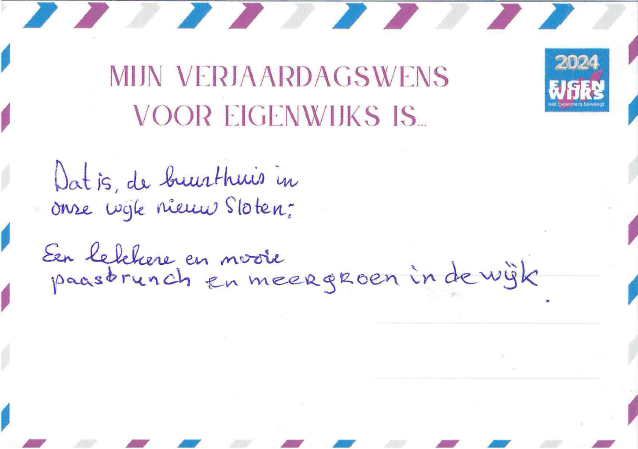 MIJN VERJAARDAGSWENS
VOOR EIGENWIJKS IS...
2024
EIGEN
WIJKS
wat bewoners beweegt
Dat is, de buurthuis in
onze wijk nieuw Sloten:
Een lekkere en mooie
paasbrunch en meer groen in de wijk.